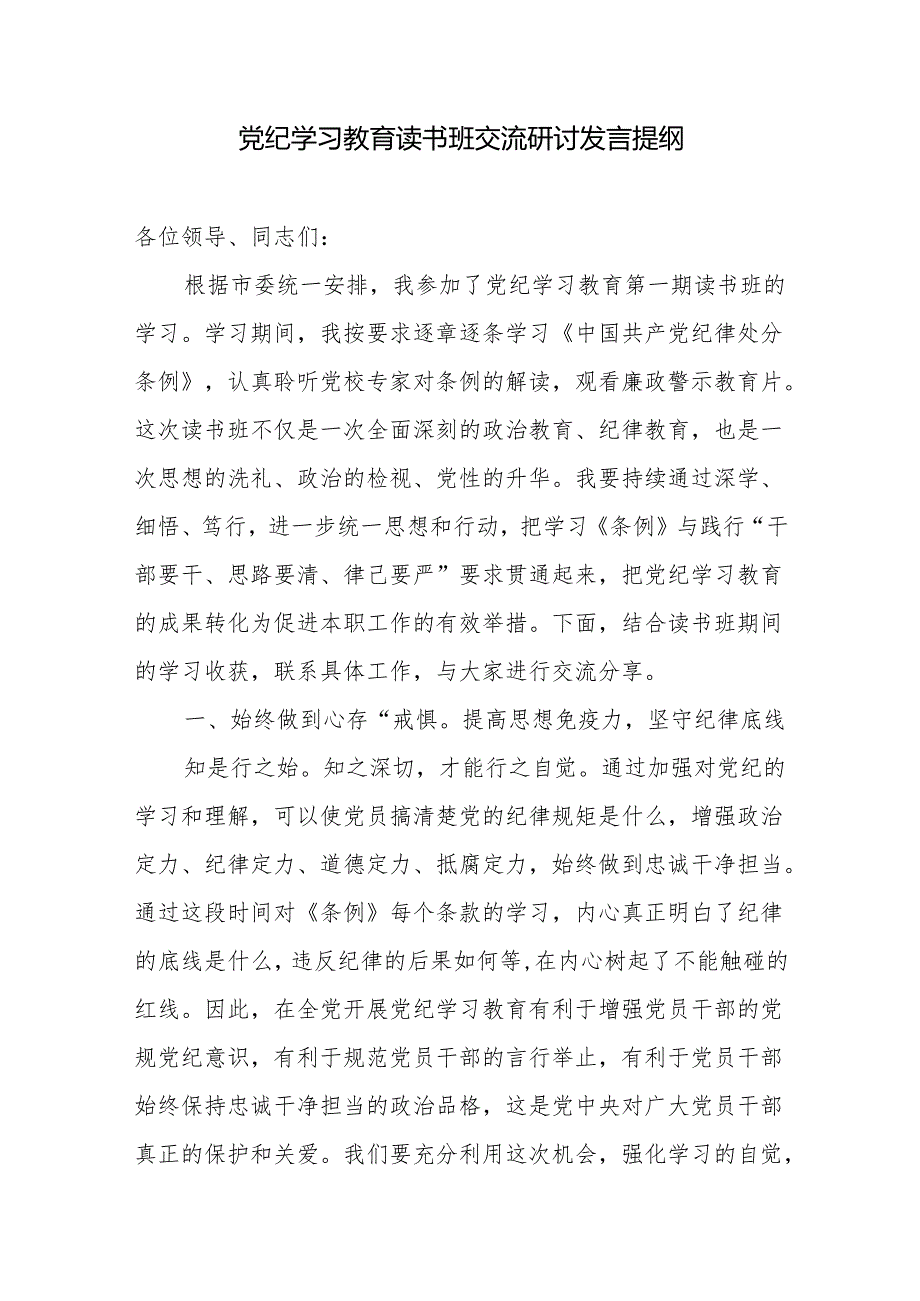 党纪学习教育读书班交流研讨发言提纲
各位领导、同志们：
根据市委统一安排，我参加了党纪学习教育第一期读书班的
学习。学习期间，我按要求逐章逐条学习《中国共产党纪律处分
条例》，认真聆听党校专家对条例的解读，观看廉政警示教育片。
这次读书班不仅是一次全面深刻的政治教育、纪律教育，也是一
次思想的洗礼、政治的检视、党性的升华。我要持续通过深学、
细悟、笃行，进一步统一思想和行动，把学习《条例》与践行“干
部要干、思路要清、律己要严”要求贯通起来，把党纪学习教育
的成果转化为促进本职工作的有效举措。下面，结合读书班期间
的学习收获，联系具体工作，与大家进行交流分享。
一、始终做到心存“戒惧。提高思想免疫力，坚守纪律底线
知是行之始。知之深切，才能行之自觉。通过加强对党纪的
学习和理解，可以使党员搞清楚党的纪律规矩是什么，增强政治
定力、纪律定力、道德定力、抵腐定力，始终做到忠诚干净担当。
通过这段时间对《条例》每个条款的学习，内心真正明白了纪律
的底线是什么，违反纪律的后果如何等,在内心树起了不能触碰的
红线。因此，在全党开展党纪学习教育有利于增强党员干部的党
规党纪意识，有利于规范党员干部的言行举止，有利于党员干部
始终保持忠诚干净担当的政治品格，这是党中央对广大党员干部
真正的保护和关爱。我们要充分利用这次机会，强化学习的自觉，